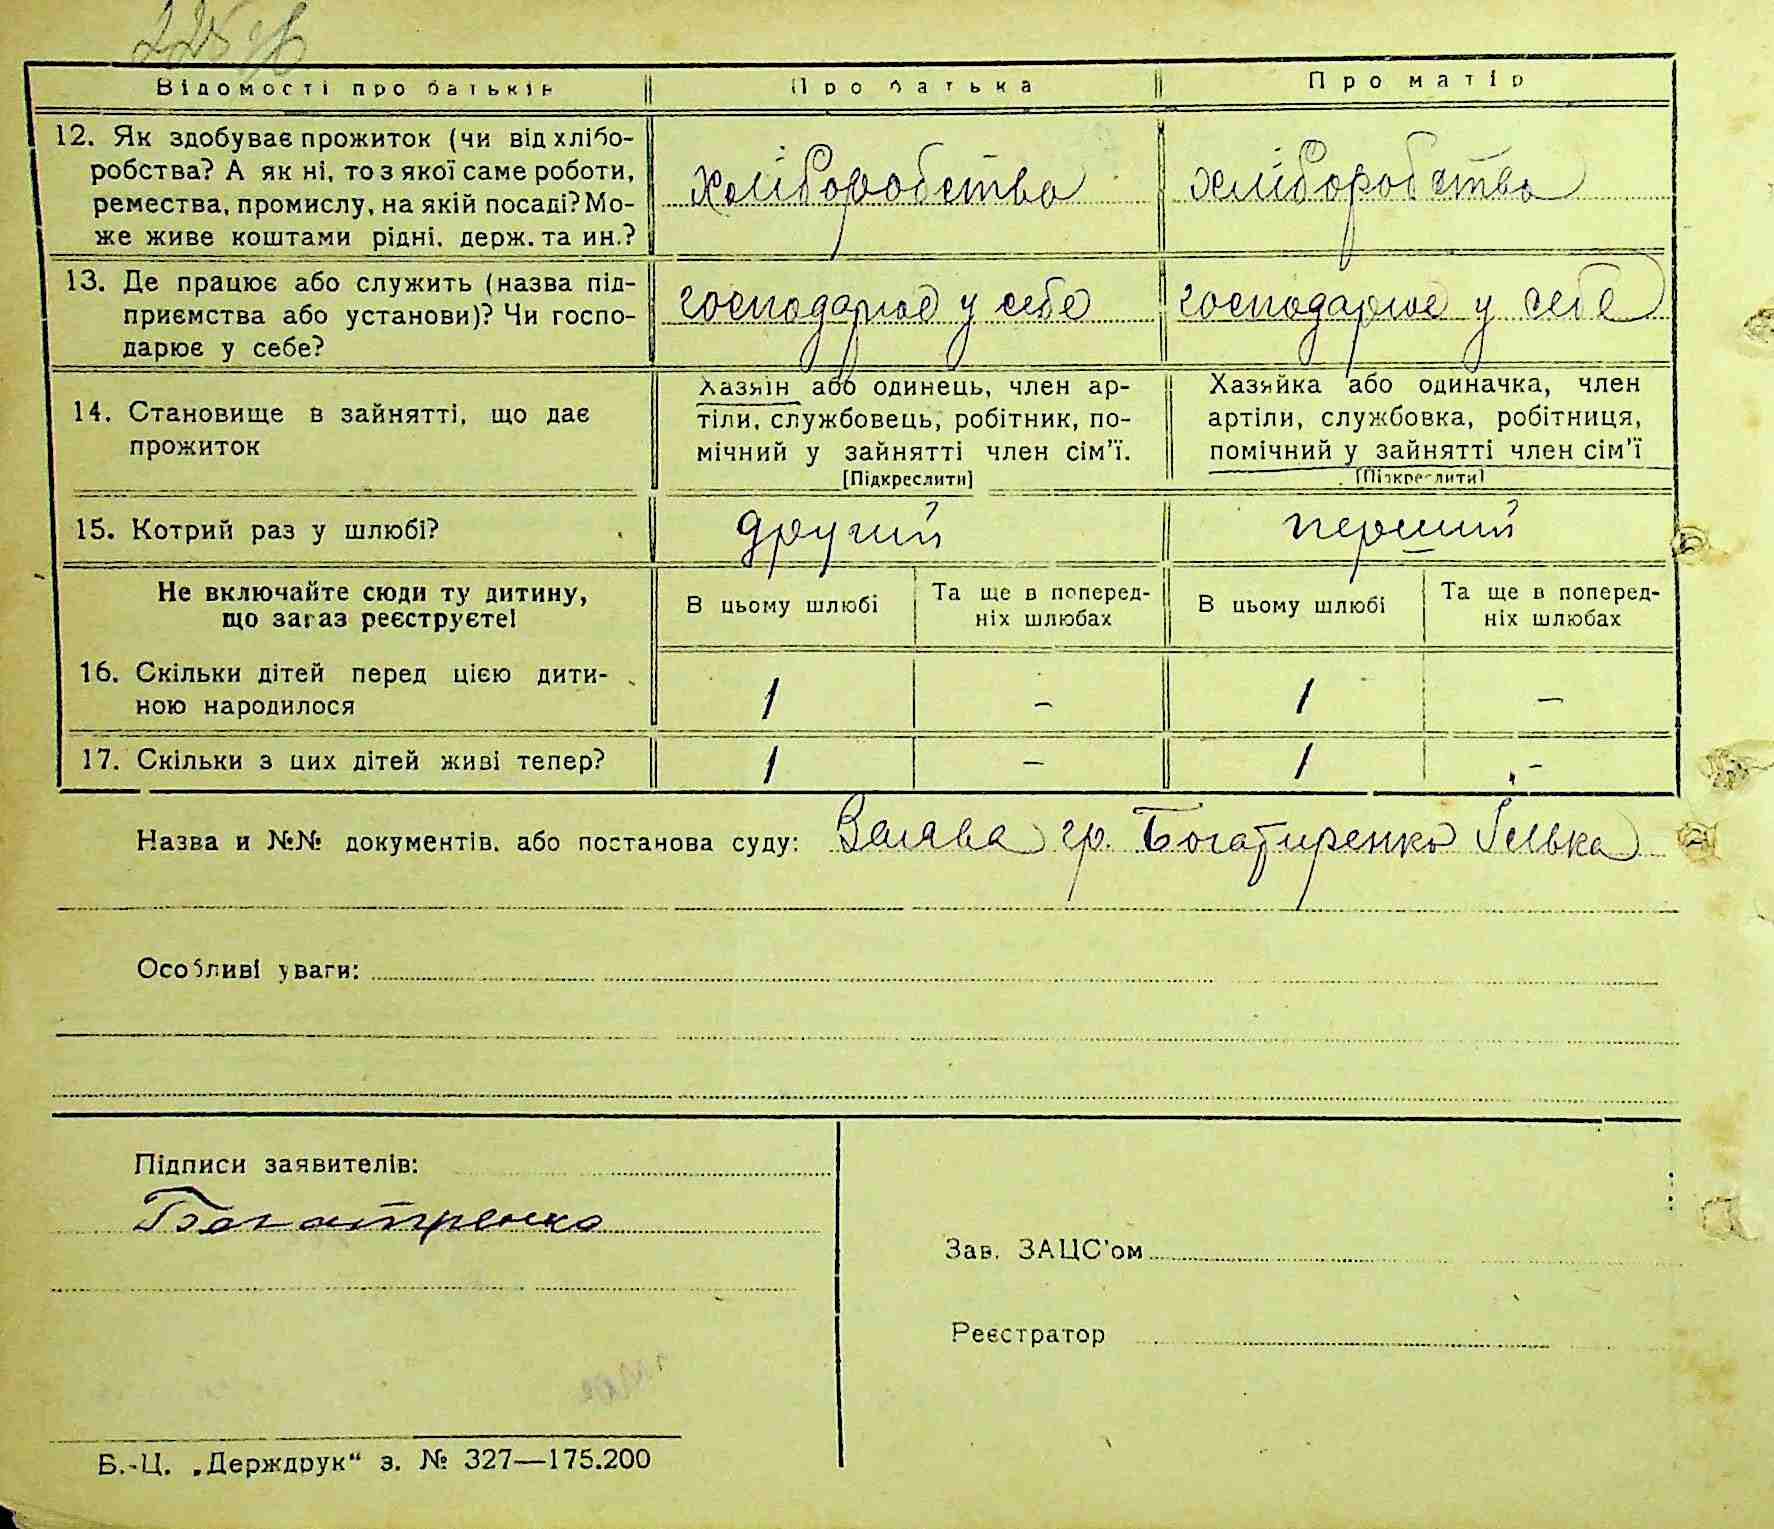 Відомості про батьків Про батька Про матір
12. Як здобуває прожиток (чи від хлібо-
робства? А як ні, то з якої саме роботи,
ремества, промислу, на якій посаді? Мо-
же живе коштами рідні, держ. та ин.?
хліборобство хліборобство
13. Де працює або служить (назва під-
приємства або установи)? Чи госпо-
дарює у себе?
господарює у себе господарює у себе
14. Становище в зайнятті, що дає
прожиток
Хазяїн або одинець, член ар-
тіли, службовець, робітник, по-
мічний у зайнятті член сім'ї.
[Підкреслити]
Хазяйка або одиначка, член
артіли, службовка, робітниця,
помічний у зайнятті член сім'ї
[Підкреслити]
15. Котрий раз у шлюбі? другий перший
Не включайте сюди ту дитину,
що зараз реєструєте!
В цьому шлюбі
Та ще в поперед-
ніх шлюбах
В цьому шлюбі
Та ще в поперед-
ніх шлюбах
16. Скільки дітей перед цією дити-
ною народилося
1 - 1 -
17. Скільки з цих дітей живі тепер? 1 - 1 -
Назва и №№ документів, або постанова суду: Заява гр. Богатиренко
Особливі уваги:
Підписи заявителів:
Богатиренко
Зав. ЗАЦС'ом
Реєстратор
Б.-Ц. „Держдрук“ з. № 327—175.200